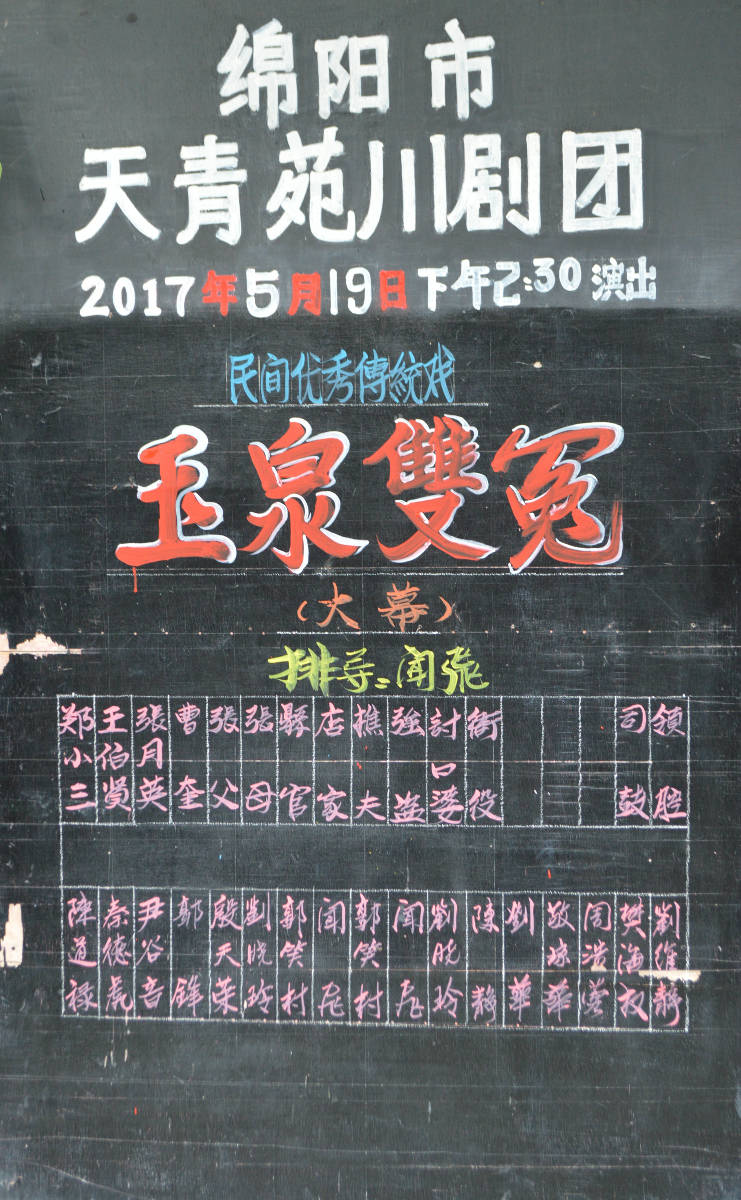 绵阳市
天青苑川剧团
2017年5月19日下午2:30演出
民间优秀傳統戏
玉泉雙冤
(大幕)
排导:闻
郑小三
王伯賢
張月英
曹奎
張父
張母
縣官
店家
樵夫
強盗
討口婆
衙役
司鼓
領腔
道禄
秦德虎
尹谷音
郭鋒
殷天荣
劉晓玲
郭笑村
闻
郭笑村
闻
劉晓玲
陳静
華
敬琼華
周浩
樊海权
劉维静